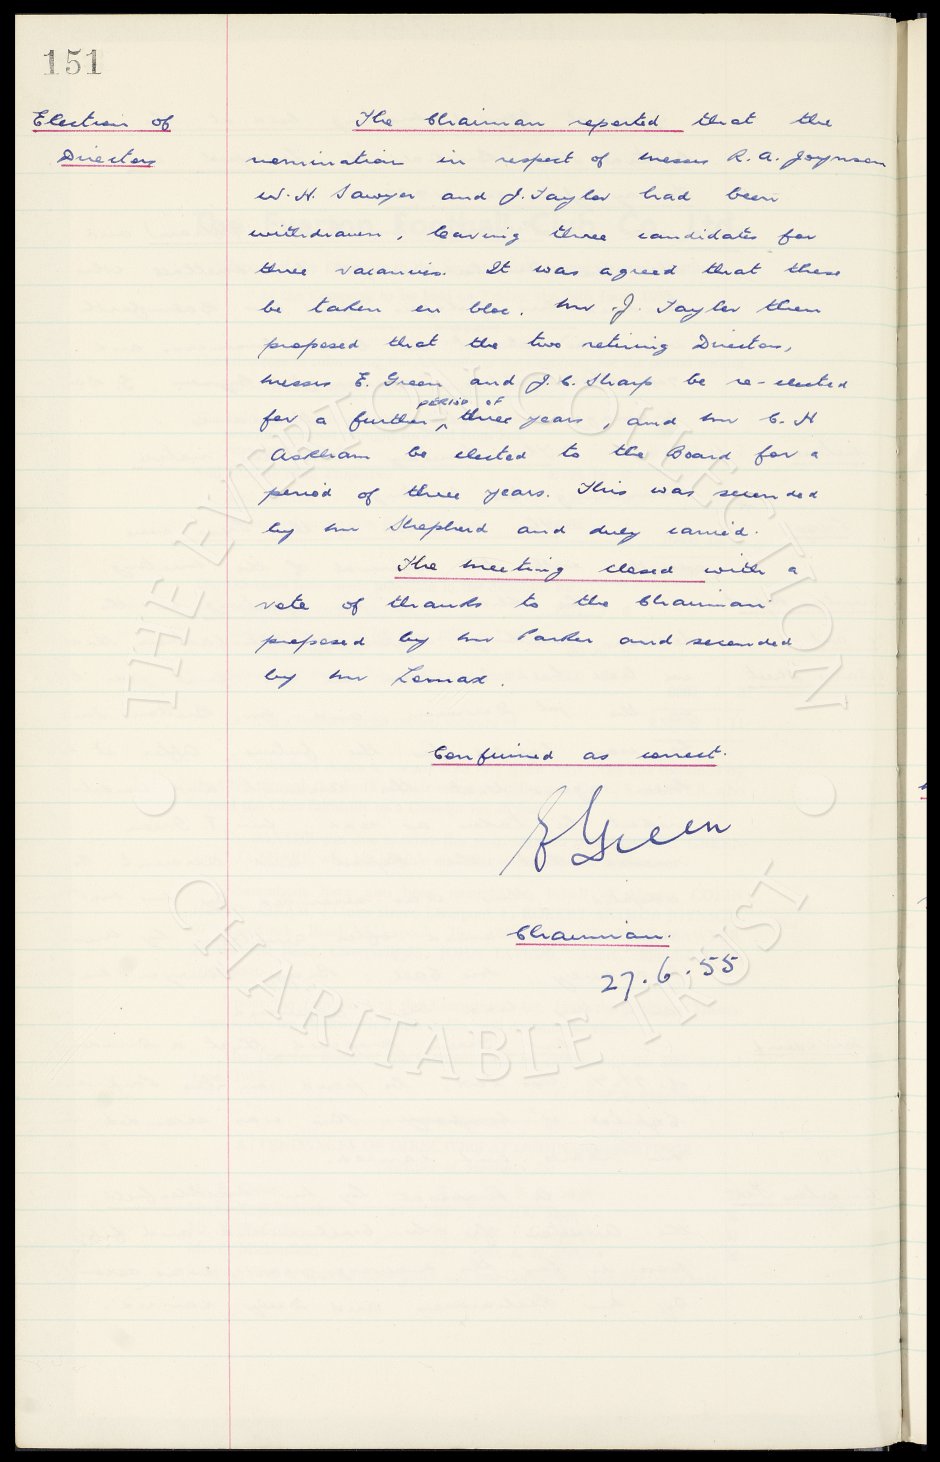 151
Election of
Directors
The Chairman reported that the
nomination in respect of Messrs R. A. Joynson
W. H. Sawyer and J. Taylor had been
withdrawn, leaving three candidates for
three vacancies. It was agreed that these
be taken en bloc. Mr J. Taylor then
proposed that the two retiring Directors,
Messrs E. Green and J. C. Sharp be re-elected
for a further PERIOD OF three years, and Mr C. H
Askham be elected to the Board for a
period of three years. This was seconded
by Mr Shepherd and duly carried.
The meeting closed with a
vote of thanks to the Chairman
proposed by Mr Parker and seconded
by Mr Lomax.
Confirmed as correct.
E Green
Chairman.
27.6.55
THE EVERTON COLLECTION
CHARITABLE TRUST